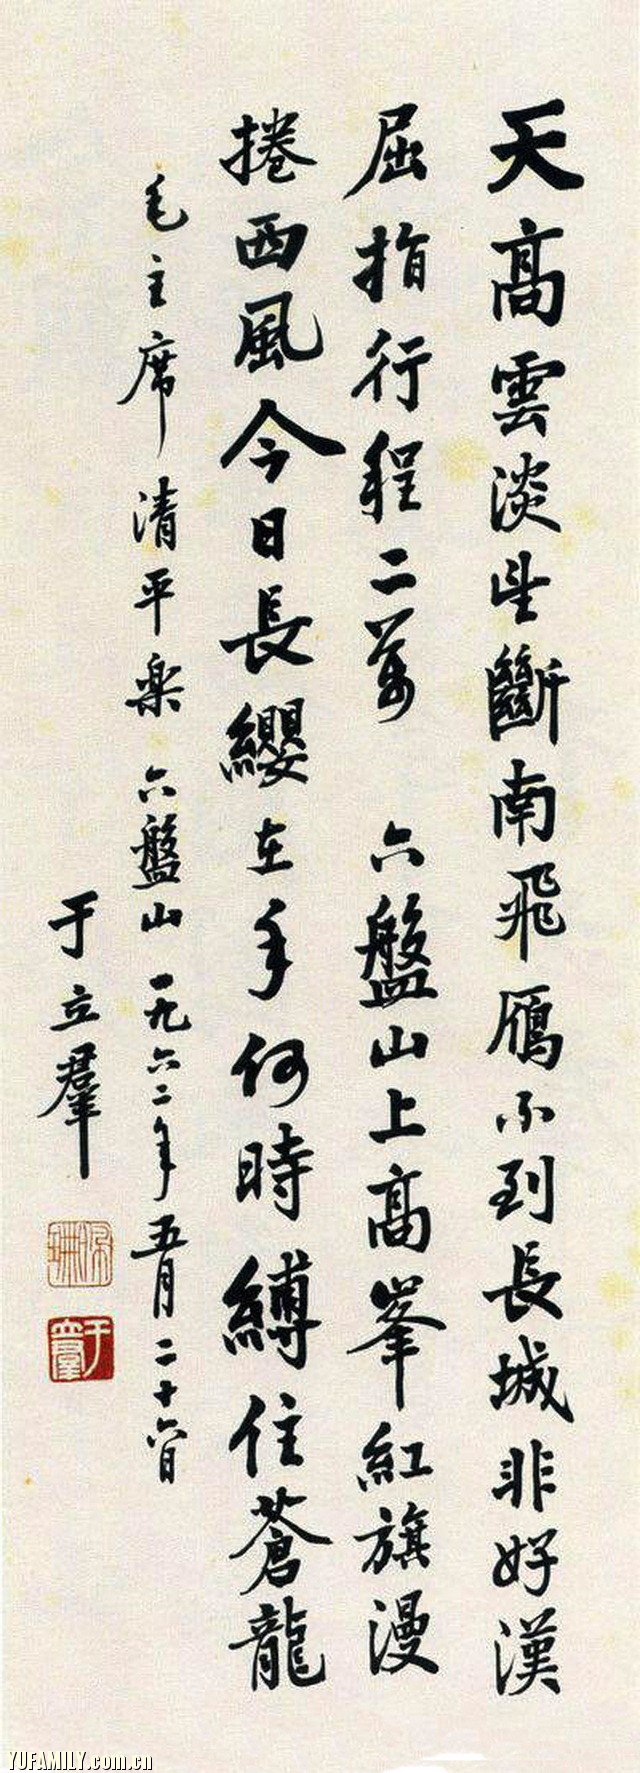 天高雲淡望斷南飛鴈不到長城非好漢
屈指行程二萬 六盤山上高峯紅旗漫
捲西風今日長纓在手何時縛住蒼龍
毛主席清平楽 六盤山一九六二年五月二十六日
于立羣
于立羣
YUFAMILY.com.cn